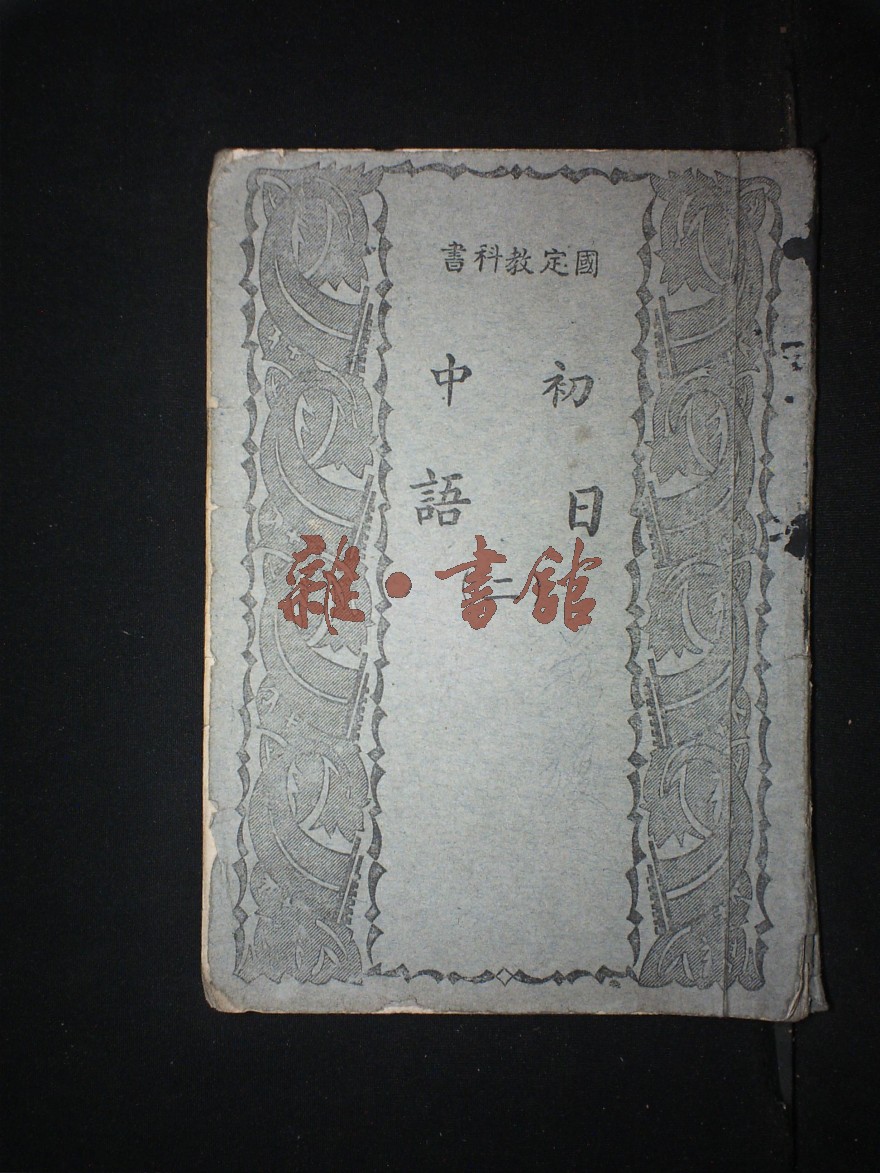 國定教科書
初中
日語
二
雜·書館